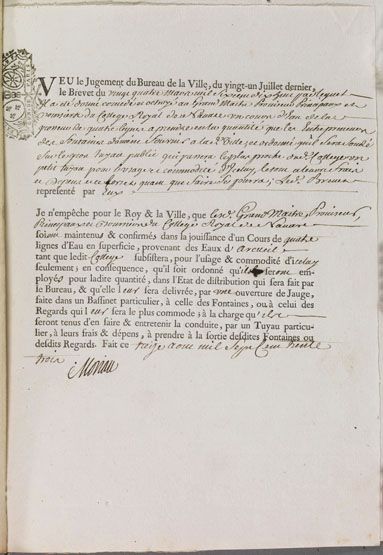 VEU le Jugement du Bureau de la Ville, du vingt-un Juillet dernier,
le Brevet du vingt quatre Mars mil six cens par lequel
Il a été donné concedé et octroyé au Grand Maitre Proviseur Principaux et
boursiers du College Royal de Navarre un cours d'Eau de la
grosseur de quatre lignes a prendre en la quantité que les
fontaines a la Ville et ordonné qu'il sera soudé
sur le gros tuyau public qui passera le plus proche dud. College un
petit tuyau pour l'usage et commodité d'Iceluy le tout a leurs frais
et depens et ce lors et quant que faire se poura, led. Brevet
représenté par Eux
Je n'empêche pour le Roy & la Ville, que lesd. Grand Maitre Proviseur,
Principaux et Boursiers du College Royal de Navarre
soient maintenus & confirmés dans la jouissance d'un Cours de quatre
lignes d'Eau en superficie, provenant des Eaux d'Arcueil
tant que ledit College subsistera, pour l'usage & commodité d'icelay
seulement; en conséquence, qu'il soit ordonné qu'ils seront em-
ployés pour ladite quantité, dans l'Etat de distribution qui sera fait par
le Bureau, & qu'elle leur sera delivrée, par une ouverture de Jauge,
faite dans un Bassinet particulier, à celle des Fontaines, ou à celui des
Regards qui leur sera le plus commode; à la charge qu'ils
seront tenus d'en faire & entretenir la conduite, par un Tuyau particu-
lier, à leurs frais & dépens, à prendre à la sortie desdites Fontaines ou
desdits Regards. Fait ce treize aout mil Sept Cent trente
trois
Moriau